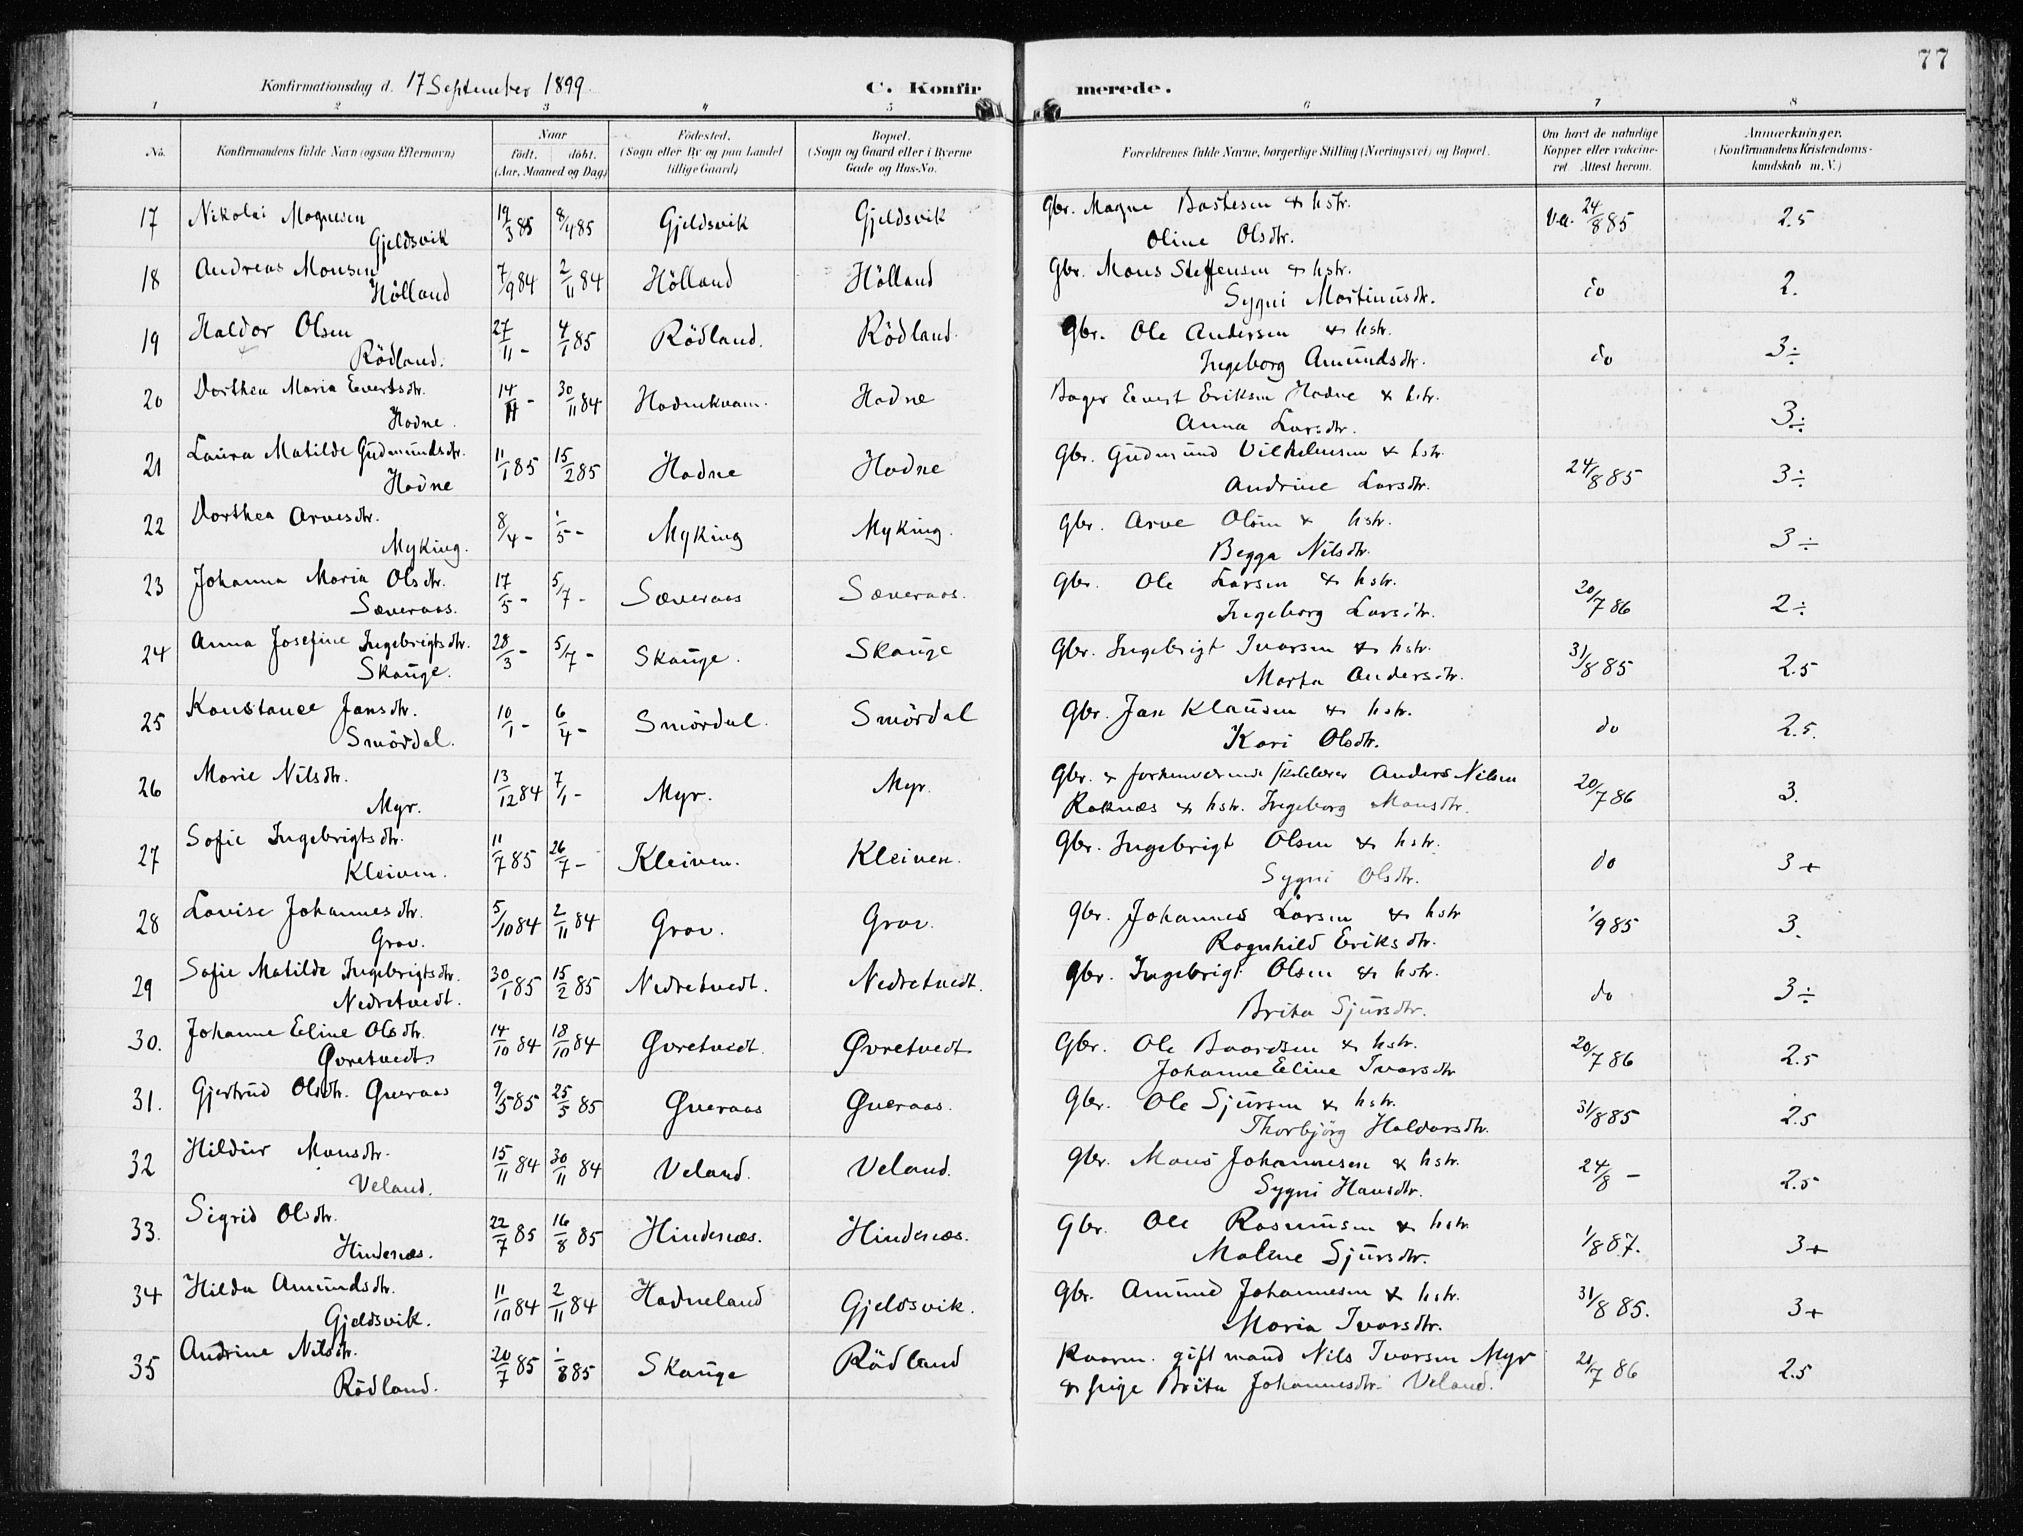 77
Konfirmationsdag d. 17 September 1899.
C. Konfirmerede.
1 2 3 4 5 6 7 8
No. Konfirmandens fulde Navn (ogsaa Efternavn) Naar født. døbt. (Aar, Maaned og Dag) Fødested. (Sogn eller By og paa Landet tillige Gaard) Bopæl. (Sogn og Gaard eller i Byerne Gade og Hus-No. Forældrenes fulde Navne, borgerlige Stilling (Næringsvei) og Bopæl. Om havt de naturlige Kopper eller vakcineret. Attest herom. Anmærkninger. (Konfirmandens Kristendomskundskab m. V.)
17 Nikolai Magnesen Gjeldsvik 19/3 85 8/4 85 Gjeldsvik Gjeldsvik Gbr. Magne Bastesen & hstr. Oline Olsdtr. Va. 24/8 85 2.5
18 Andreas Monsen Hölland 7/9 84 2/11 84 Hölland Hölland Gbr. Mons Steffensen & hstr. Sygni Martinusdtr. do 2.
19 Haldor Olsen Rödland. 27/11 - 4/1 85 Rödland. Rödland. Gbr. Ole Andersen & hstr. Ingeborg Amundsdtr. do 3÷
20 Dorthea Maria Evertsdtr. Hodne. 14/11 - 30/11 84 Hodnekvam. Hodne Bager Evert Eriksen Hodne & hstr. Anna Larsdtr. 3÷
21 Laura Matilde Gudmundsdtr. Hodne 11/1 85 15/2 85 Hodne Hodne Gbr. Gudmund Vilhelmsen & hstr. Andrine Larsdtr. 24/8 85 3÷
22 Dorthea Arvesdtr. Myking. 8/4 - 1/5 - Myking Myking. Gbr. Arve Olsen & hstr. Begga Nilsdtr. 3÷
23 Johanna Maria Olsdtr. Sæveraas. 17/5 - 5/7 - Sæveraas Sæveraas. Gbr. Ole Larsen & hstr. Ingeborg Larsdtr. 20/7 86 2÷
24 Anna Josefine Ingebrigtsdtr. Skauge. 28/3 - 5/7 - Skauge. Skauge Gbr. Ingebrigt Ivarsen & hstr. Marta Andersdtr. 31/8 85 2.5
25 Konstance Jansdtr. Smördal. 10/1 - 6/4 - Smördal. Smördal Gbr. Jan Klausen & hstr. Kari Olsdtr. do 2.5.
26 Marie Nilsdtr. Myr. 13/12 84 7/1 - Myr. Myr. Gbr. & forhenværende skolelærer Anders Nilsen Roknæs & hstr. Ingeborg Monsdtr. 20/7 86 3.
27 Sofie Ingebrigtsdtr. Kleiven. 11/7 85 26/7 - Kleiven. Kleiven. Gbr. Ingebrigt Olsen & hstr. Sygni Olsdtr. do 3+
28 Lovise Johannesdtr. Grov. 5/10 84 2/11 84 Grov. Grov. Gbr. Johannes Larsen & hstr Ragnhild Eriksdtr. 1/9 85 3.
29 Sofie Matilde Ingebrigtsdtr. Nedretvedt. 30/1 85 15/2 85 Nedretvedt. Nedretvedt. Gbr. Ingebrigt Olsen & hstr. Brita Sjursdtr. do 3÷
30. Johanne Eline Olsdtr. Øvretvedt 14/10 84 18/10 84 Øvretvedt. Øvretvedt Gbr. Ole Baardsen & hstr. Johanne Eline Ivarsdtr 20/7 86 2.5
31. Gjertrud Olsdtr. Øveraas 9/5 85 25/5 85 Øveraas Øveraas. Gbr. Ole Sjursen & hstr. Thorbjörg Haldorsdtr. 31/8 85 2.5
32 Hildur Monsdtr. Veland. 15/11 84 30/11 84 Veland. Veland. Gbr. Mons Johannesen & hstr. Sygni Hansdtr. 24/8 - 2.5
33. Sigrid Olsdtr. Hindenæs. 22/7 85 16/8 85 Hindenæs. Hindenæs. Gbr. Ole Rasmusen & hstr Malene Sjursdtr. 1/8 87. 3+
34 Hilda Amundsdtr. Gjeldsvik. 11/10 84 2/11 84 Hodneland Gjeldsvik. Gbr. Amund Johannesen & hstr. Maria Ivarsdtr. 31/8 85. 3+
35 Andrine Nilsdtr. Rödland. 20/7 85 1/8 85 Skauge Rödland gift mand Nils Ivarsen Myr & pige Brita Johannesdtr. Veland. 20/7 86 2.5